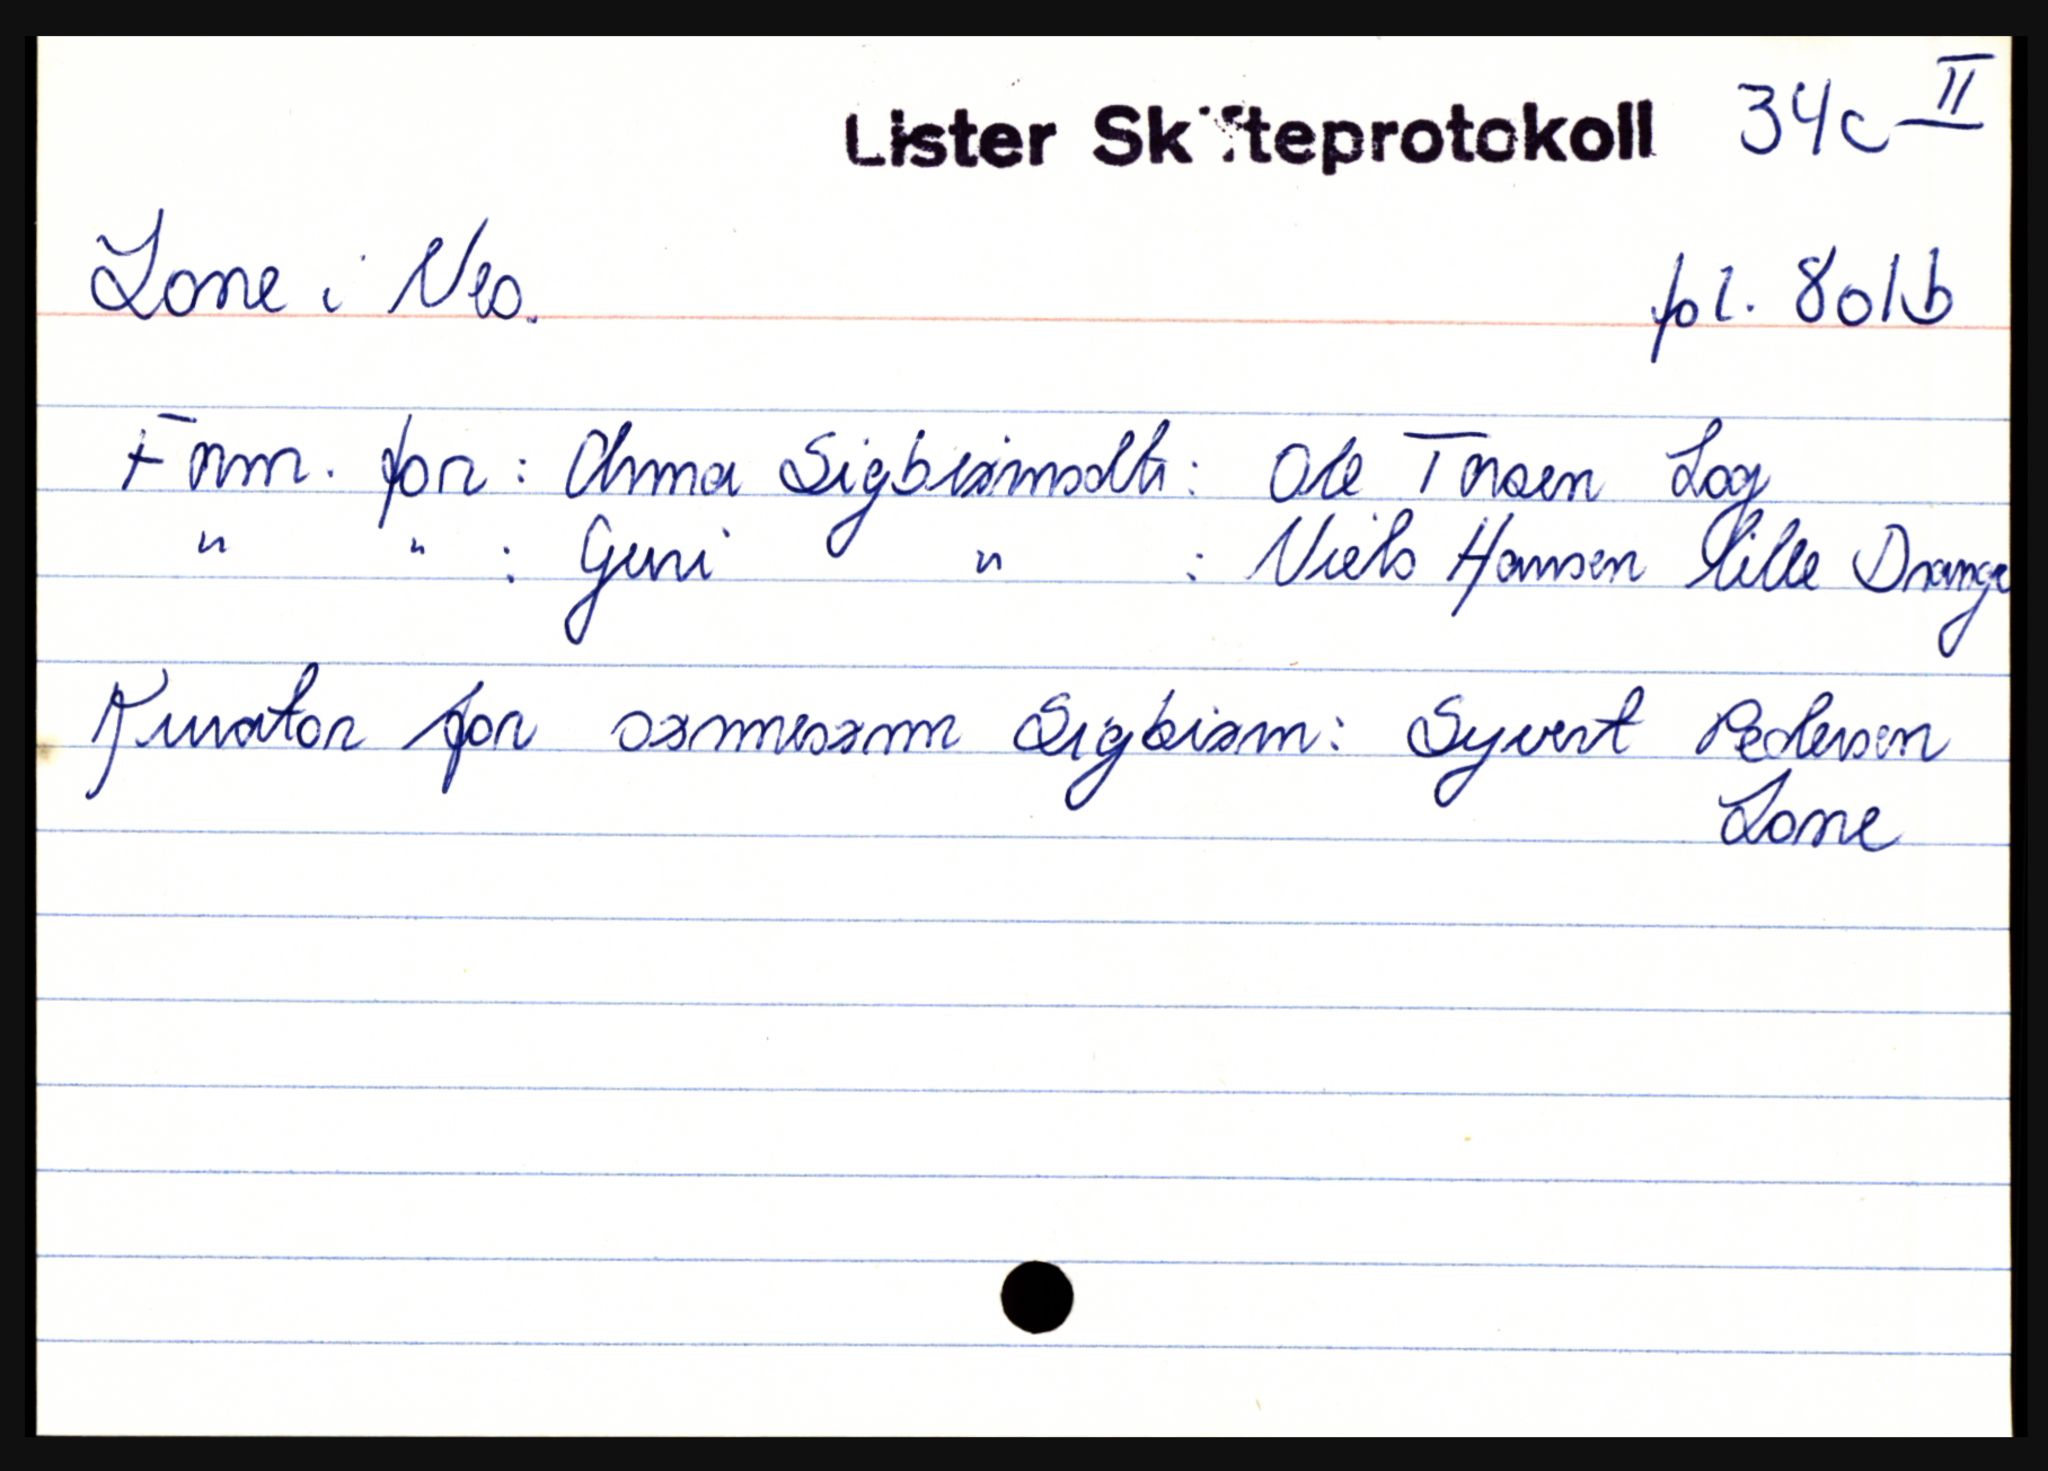 Lister Skifteprotokoll 34c II
Lone i Nes. fol. 801b
Form. for: Anna Sigbiørnsdtr: Ole Torsen Log
" " : Guri " : Niels Hansen Lille Drange
Kurator for sønnesønn Sigbiørn: Syvert Pedersen
Lone